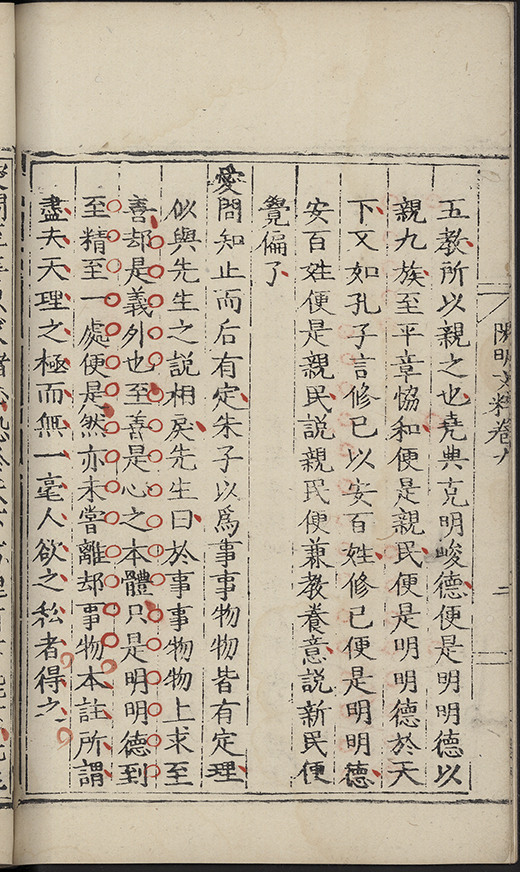 陽明文粹卷八
二
五教所以親之也堯典克明峻德便是明明德以
親九族至平章恊和便是親民便是明明德於天
下又如孔子言修已以安百姓修已便是明明德
安百姓便是親民説親民便兼教養意説新民便
覺偏了
愛問知止而后有定朱子以爲事事物物皆有定理
似與先生之説相戾先生曰於事事物物上求至
善却是義外也至善是心之本體只是明明德到
至精至一處便是然亦未嘗離却事物本註所謂
盡夫天理之極而無一毫人欲之私者得之